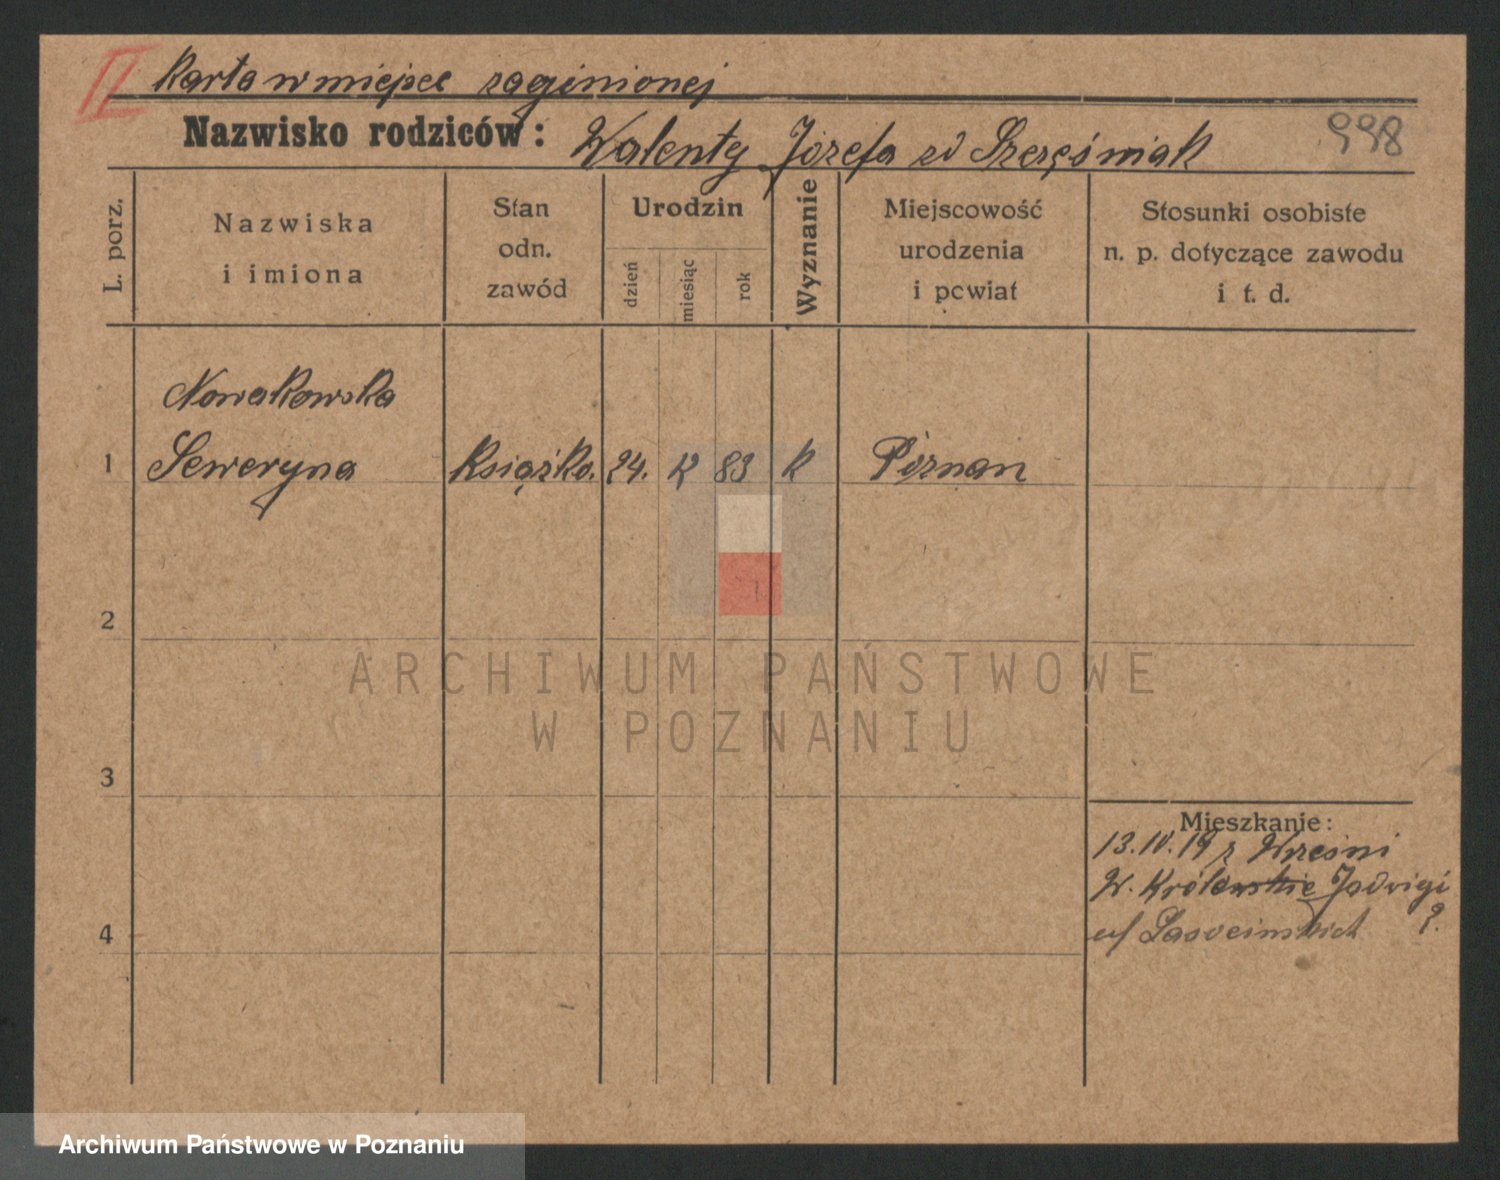 II Karta w miejsce zaginionej
Nazwisko rodziców: Walenty Józefa zd Szcześniak 998
L. porz.
Nazwiska
i imiona
Stan
odn.
zawód
Urodzin
dzień
miesiąc
rok
Wyznanie
Miejscowość
urodzenia
i powiat
Stosunki osobiste
n. p. dotyczące zawodu
i t. d.
Nowakowska
1 Seweryna Książko. 24. 12 83 k Poznan
2
ARCHIWUM PAŃSTWOWE
W POZNANIU
3
Mieszkanie:
13. IV. 19 z Wrześni
W. Królewskie Jadwigi
9.
4
Archiwum Państwowe w Poznaniu